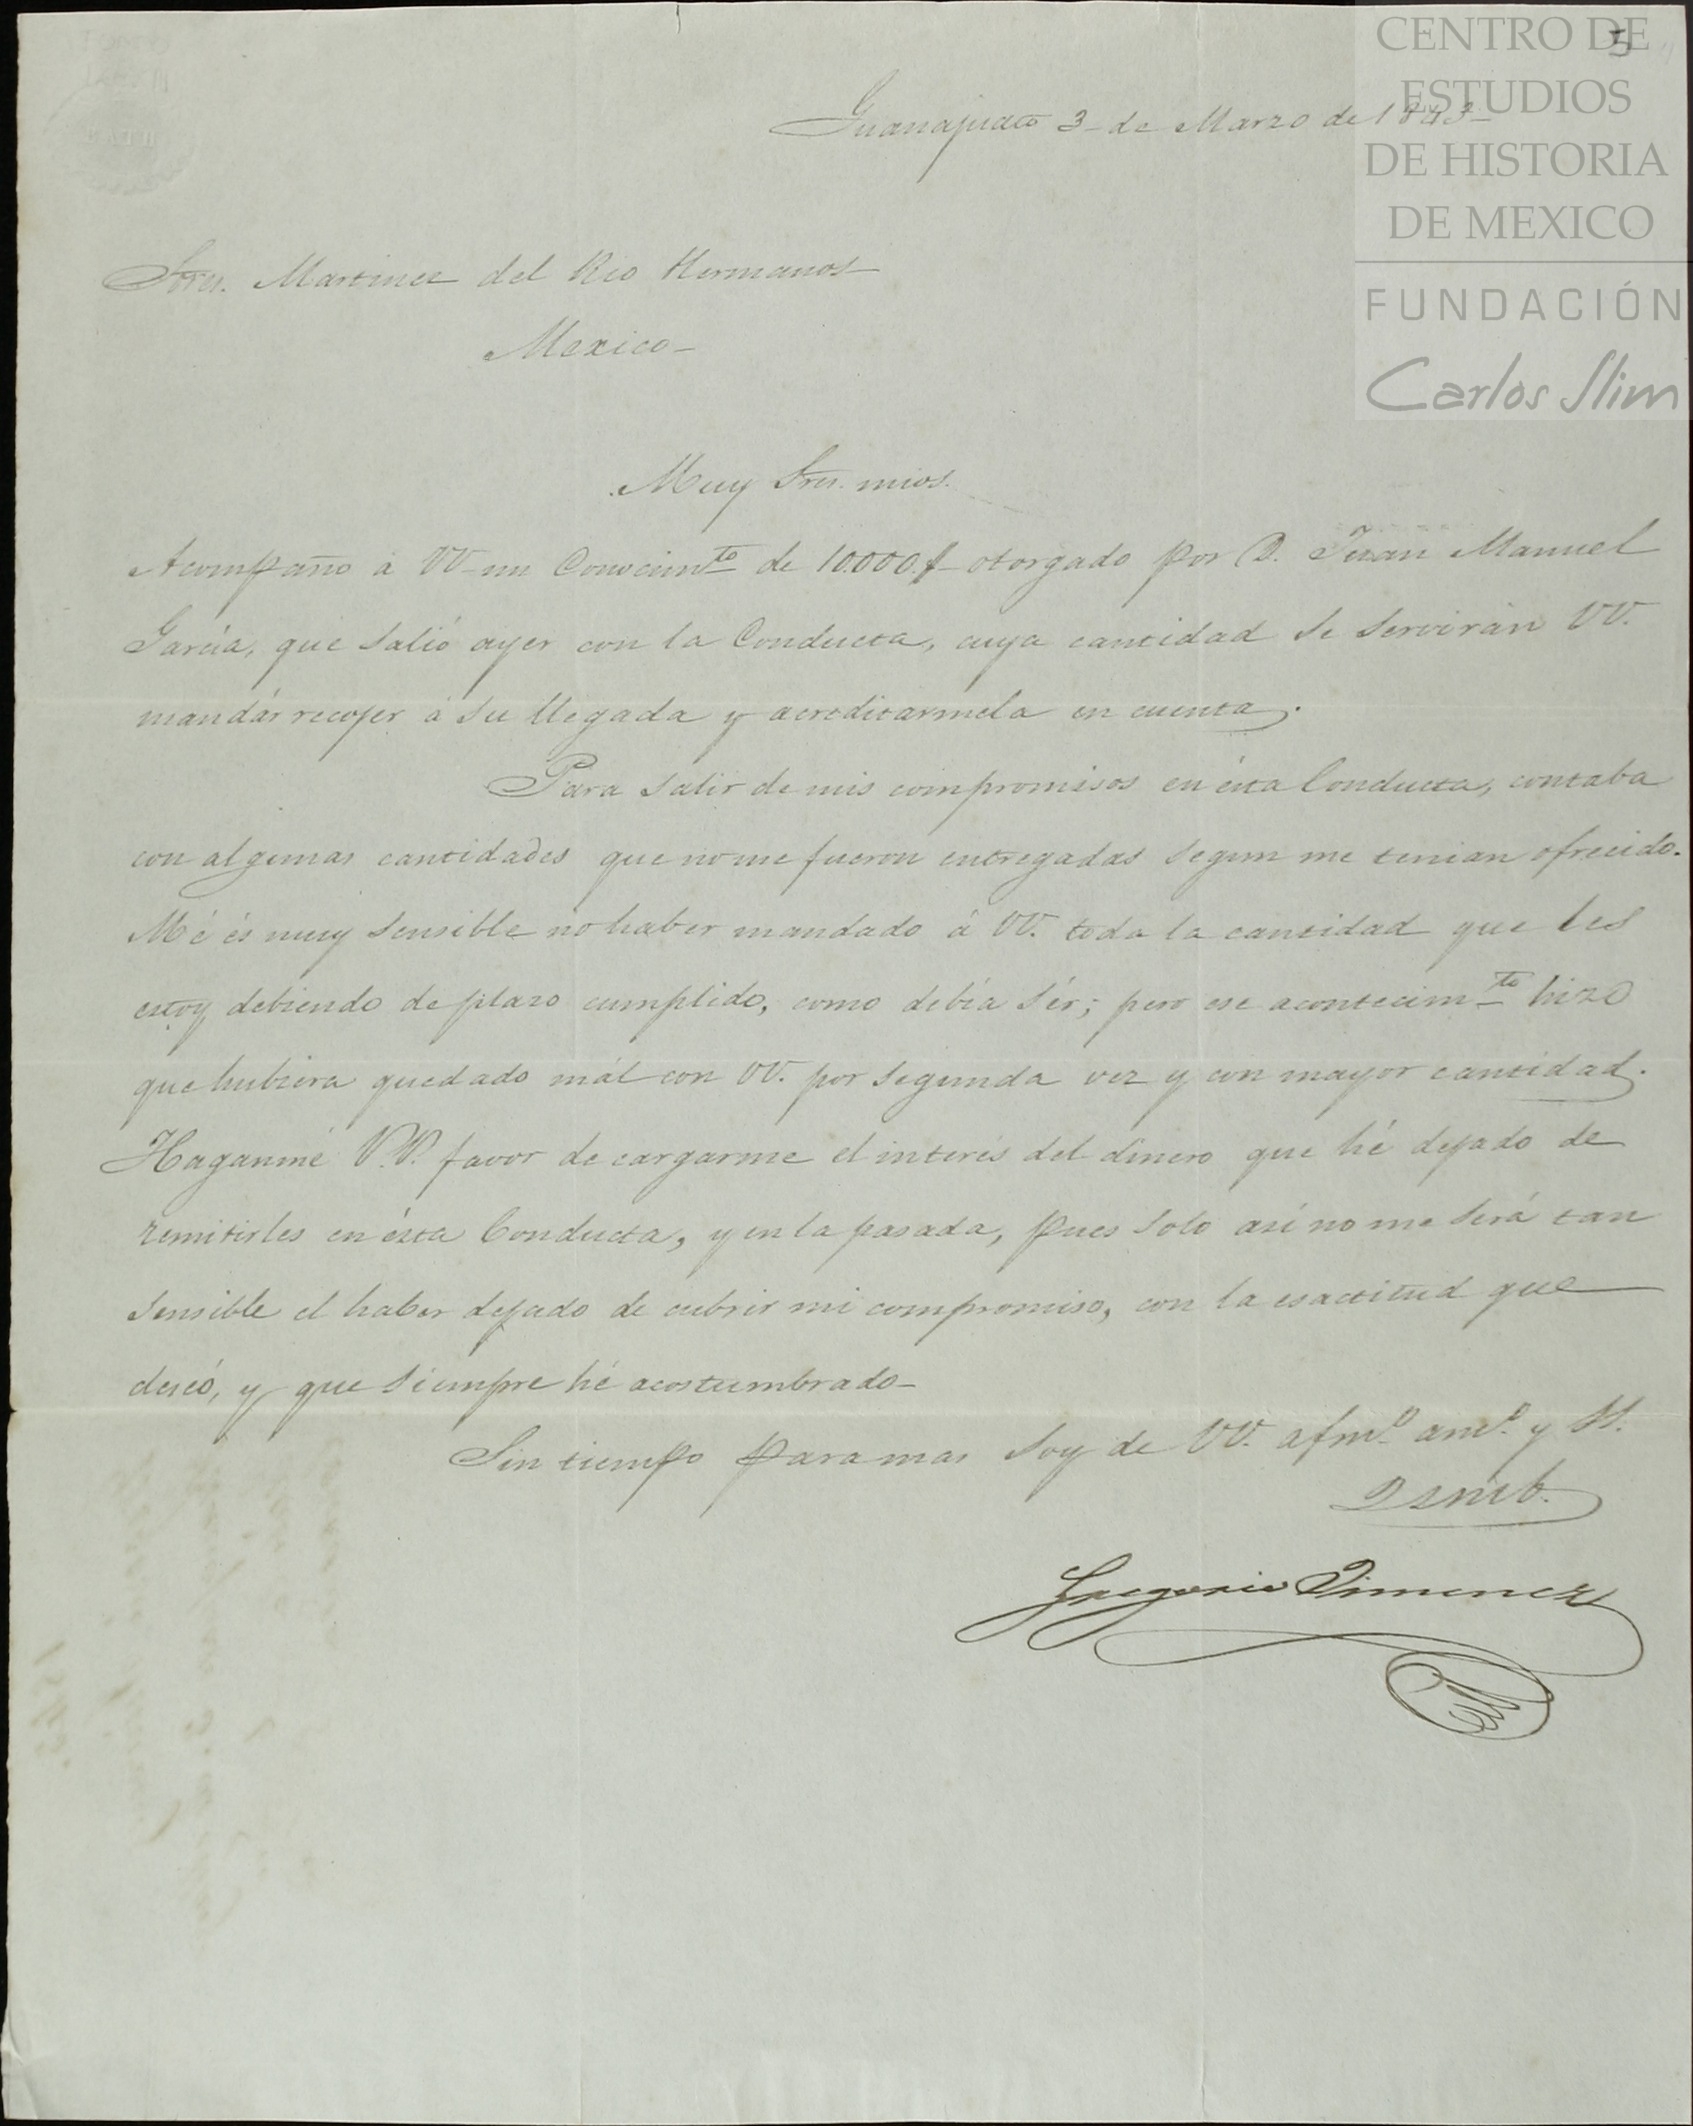 CENTRO DE
ESTUDIOS
DE HISTORIA
DE MEXICO
FUNDACIÓN
Carlos Slim
5
Guanajuato 3 - de Marzo de 1843 -
Sres. Martinez del Rio Hermanos
Mexico -
Muy Sres. mios.
Acompaño á VV un Conocim.to de 10.000 $ otorgado por D. Juan Manuel
Garcia, que salió ayer con la Conducta, cuya cantidad se servirán VV.
mandár recojer á su llegada y acreditarmela en cuenta.
Para salir de mis compromisos en ésta Conducta, contaba
con algunas cantidades que no me fueron entregadas segun me tenian ofrecido.
Mé és muy sensible no haber mandado á VV. toda la cantidad que les
estoy debiendo de plazo cumplido, como debía sér; pero ese acontecim.to hizo
que hubiera quedado mál con VV. por segunda vez y con mayor cantidad.
Haganmé V.V. favor de cargarme el interés del dinero que hé dejado de
remitirles en ésta Conducta, y en la pasada, pues solo así no me será tan
sensible el haber dejado de cubrir mi compromiso, con la esactitud que
deseó, y que siempre hé acostumbrado -
Sin tiempo para mas soy de VV. afmo. amo. y SS.
Q S M B.
Gregorio Jimenez